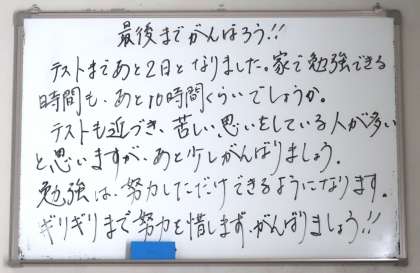 最後までがんばろう!!
テストまであと2日となりました。家で勉強できる
時間も、あと10時間くらいでしょうか。
テストも近づき、苦しい思いをしている人が多い
と思いますが、あと少しがんばりましょう。
勉強は、努力しただけできるようになります。
ギリギリまで努力を惜しまず、がんばりましょう!!